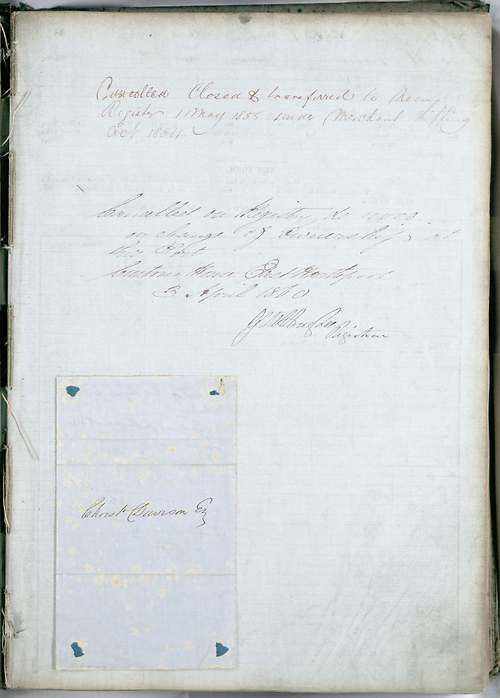 Cancelled Closed & transferred to new
Register 1 May 1855 under Merchant Shipping
Act 1854.
Cancelled on Register
on change of Ownership at
this Port
Custom House East Hartlepool
3 April 1860
Registrar
Christr Davison Eq